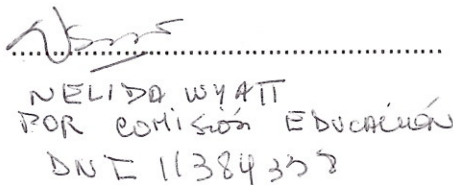 NELIDA WYATT
POR COMISIÓN EDUCACIÓN
DNI 11384358